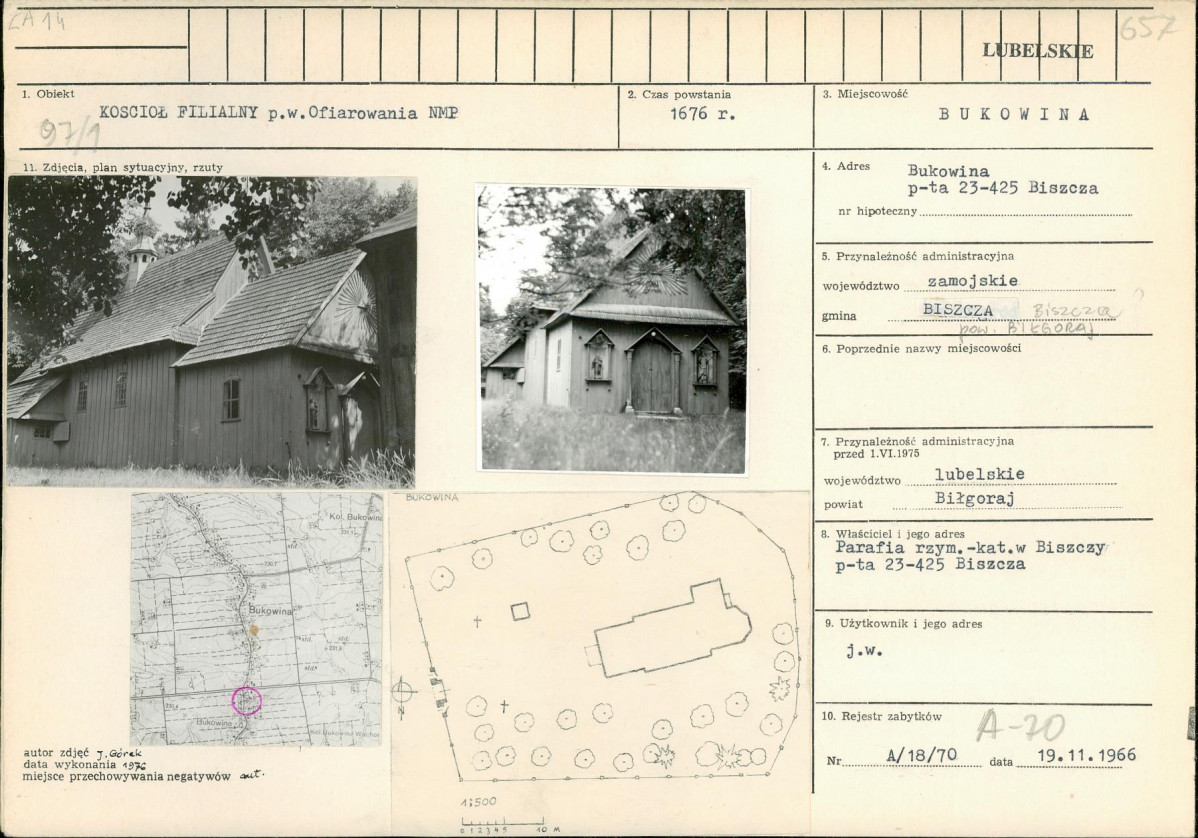 CA 14
657
LUBELSKIE
1. Obiekt
KOSCIOŁ FILIALNY p.w.Ofiarowania NMP
97/1
2. Czas powstania
1676 r.
3. Miejscowość
BUKOWINA
11. Zdjęcia, plan sytuacyjny, rzuty
4. Adres
Bukowina
p-ta 23-425 Biszcza
nr hipoteczny
5. Przynależność administracyjna
województwo zamojskie
gmina BISZCZA Biszcza ?
pow. BIŁGORAJ
6. Poprzednie nazwy miejscowości
7. Przynależność administracyjna
przed 1.VI.1975
województwo lubelskie
powiat Biłgoraj
8. Właściciel i jego adres
Parafia rzym.-kat.w Biszczy
p-ta 23-425 Biszcza
9. Użytkownik i jego adres
j.w.
10. Rejestr zabytków
A-70
Nr A/18/70 data 19.11.1966
BUKOWINA
Kol. Bukowina
Bukowina
Bukowina
autor zdjęć J. Górak
data wykonania 1976
miejsce przechowywania negatywów aut.
N
1:500
0 1 2 3 4 5 10 M